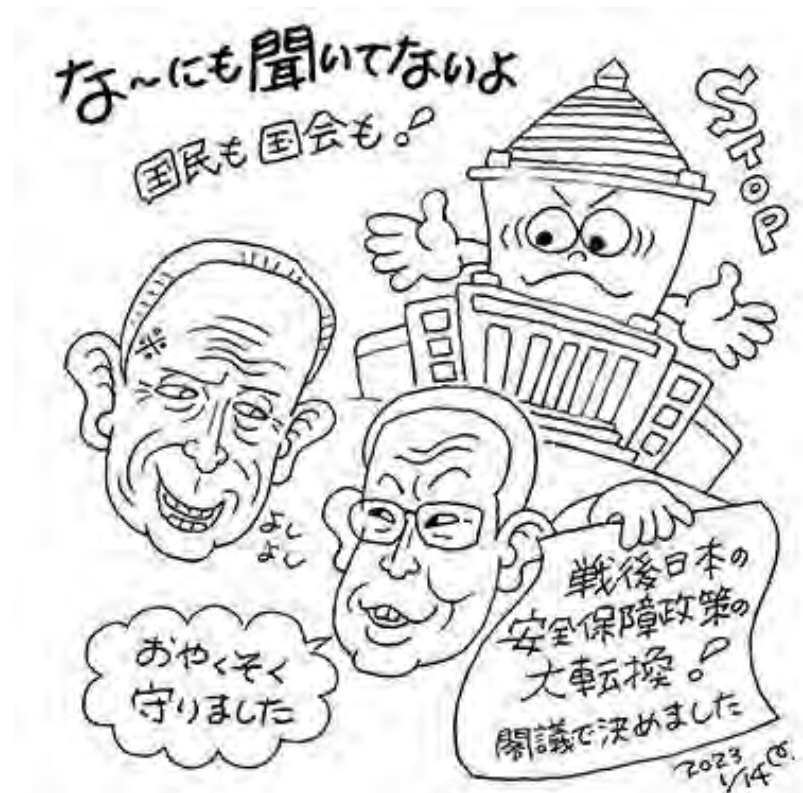 な～にも聞いてないよ
国民も国会も!
STOP
よし
よし
おやくそく
守りました
戦後日本の
安全保障政策の
大転換!
閣議で決めました
2023
1/14